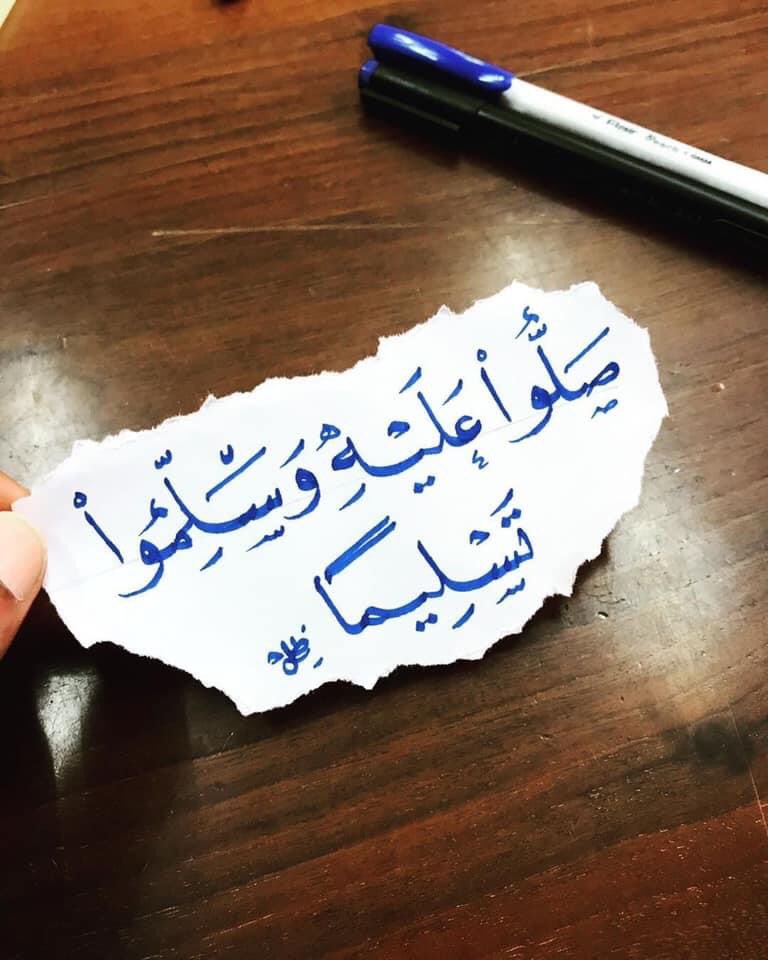 صَلُّوا۟ عَلَيْهِ وَسَلِّمُوا۟
تَسْلِيمًا